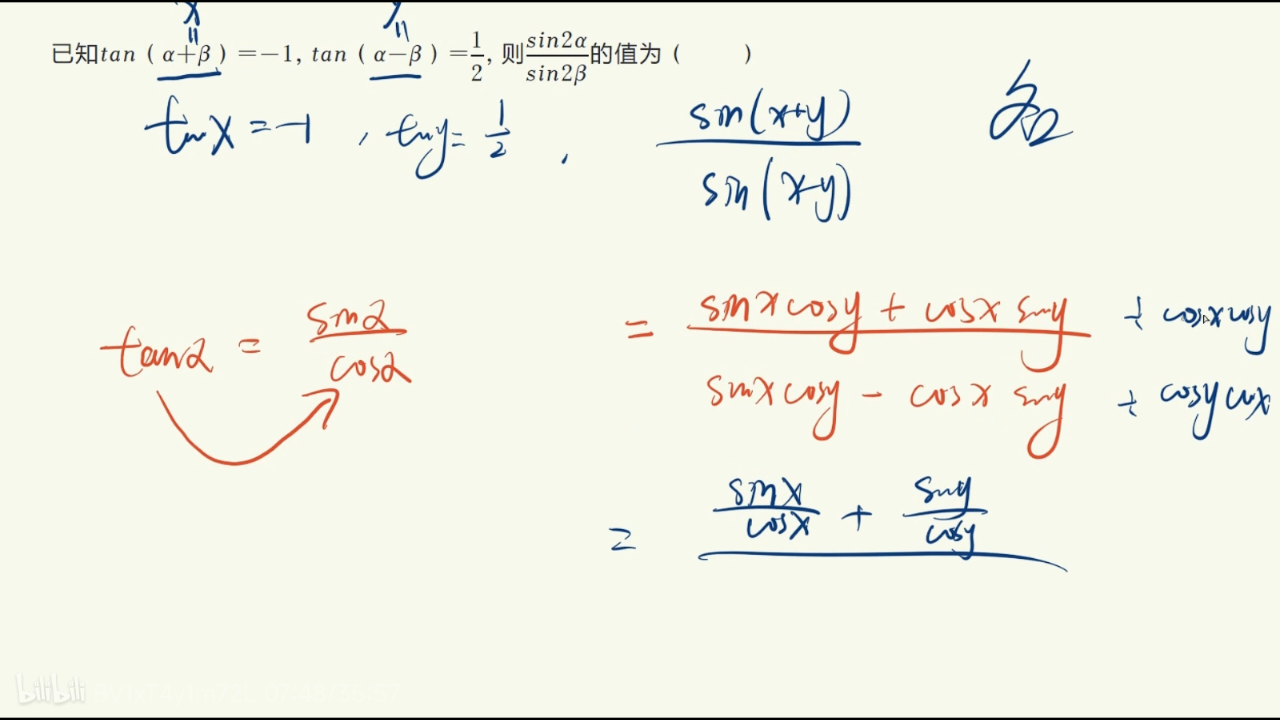 x = y =
已知tan（α+β）=−1, tan（α−β）=1/2, 则sin2α/sin2β的值为（　　）
tanx = −1 , tany = 1/2 , sin(x+y)/sin(x−y)
tanα = sinα/cosα
= (sinx cosy + cosx siny)/(sinx cosy − cosx siny) ÷ cosx cosy ÷ cosy cosx
= sinx/cosx + siny/cosy
bilibili